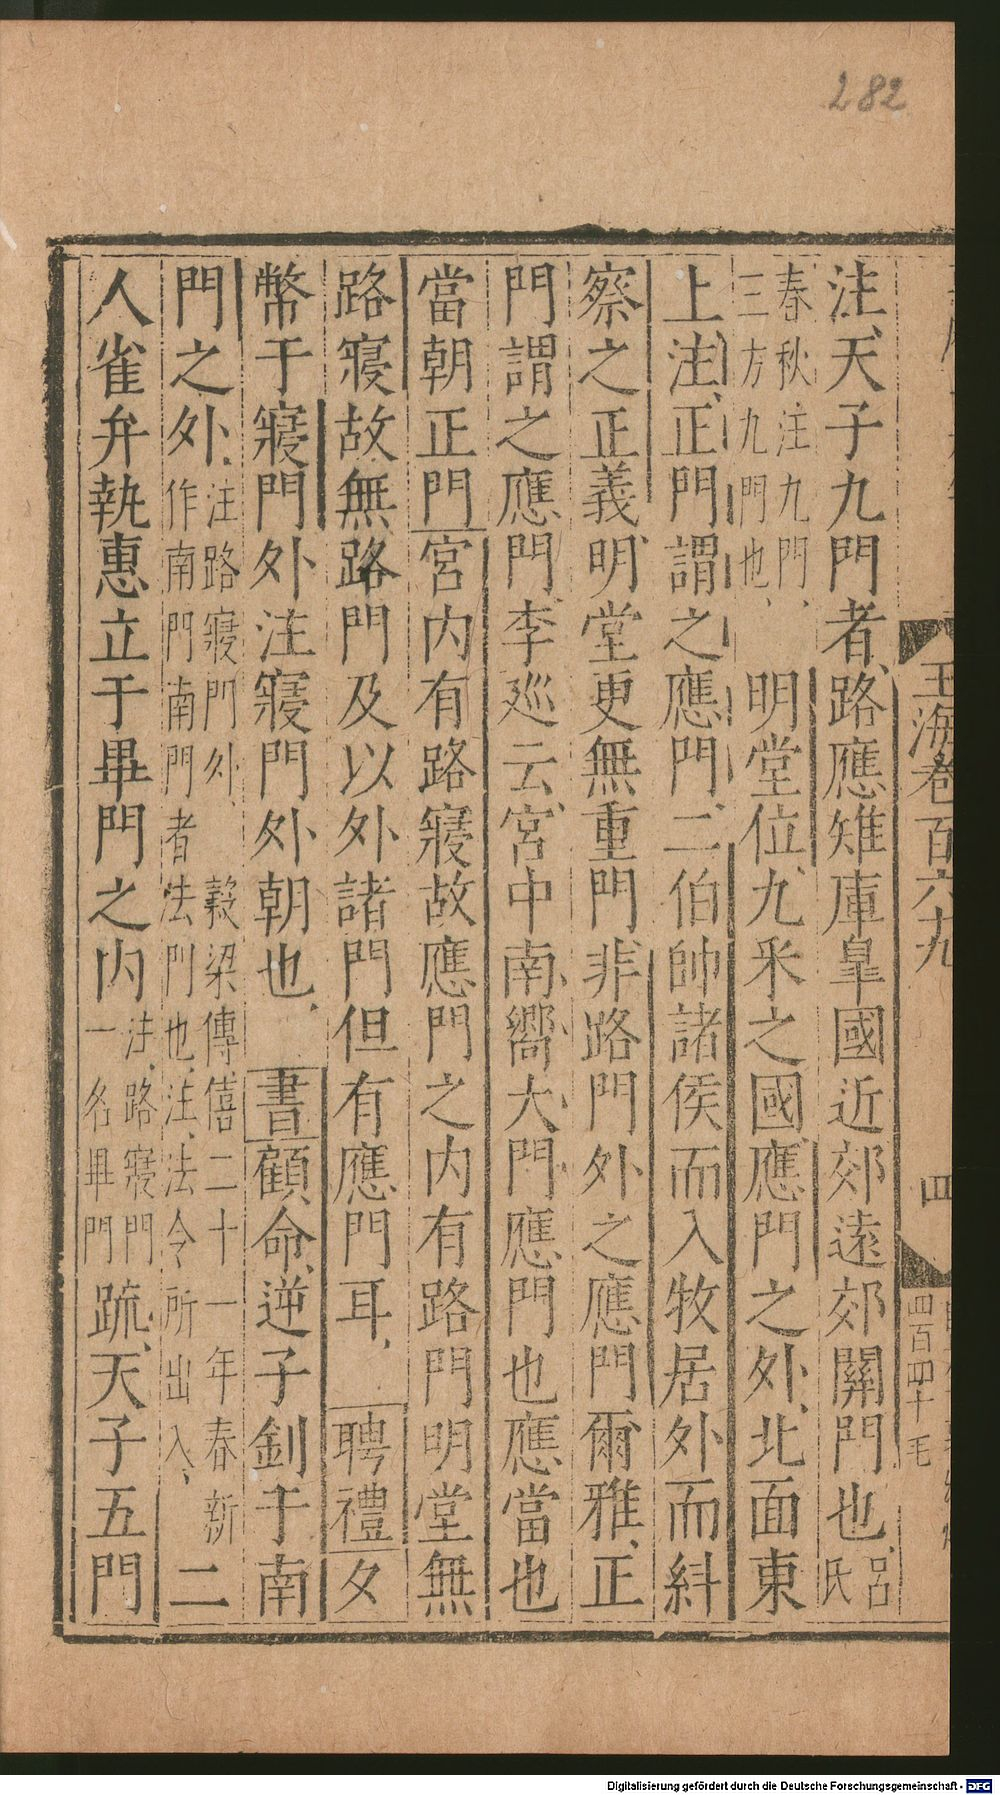 282
玉海卷百六九
四
四百四十毛
注天子九門者路應雉庫臯國近郊遠郊關門也呂氏
春秋注九門
三方九門也
明堂位九釆之國應門之外北面東
上注正門謂之應門二伯帥諸侯而入牧居外而糾
察之正義明堂更無重門非路門外之應門爾雅正
門謂之應門李巡云宮中南嚮大門應門也應當也
當朝正門宮内有路寢故應門之内有路門明堂無
路寢故無路門及以外諸門但有應門耳 聘禮夕
幣于寢門外注寢門外朝也 書顧命逆子釗于南
門之外注路寢門外 穀梁傳僖二十一年春新
作南門南門者法門也注法令所出入
二
人雀弁執惠立于畢門之内注路寢門
一名畢門
疏天子五門
Digitalisierung gefördert durch die Deutsche Forschungsgemeinschaft - DFG